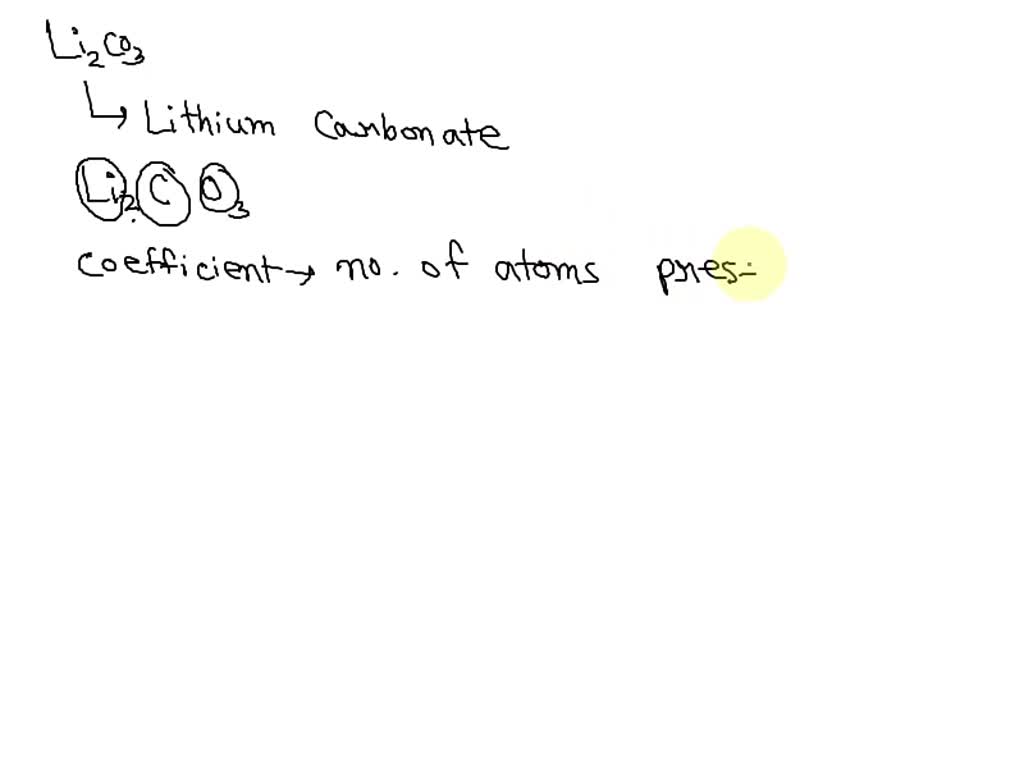 Li₂CO₃
↳ Lithium Carbonate
Li₂CO₃
coefficient → no. of atoms pres-